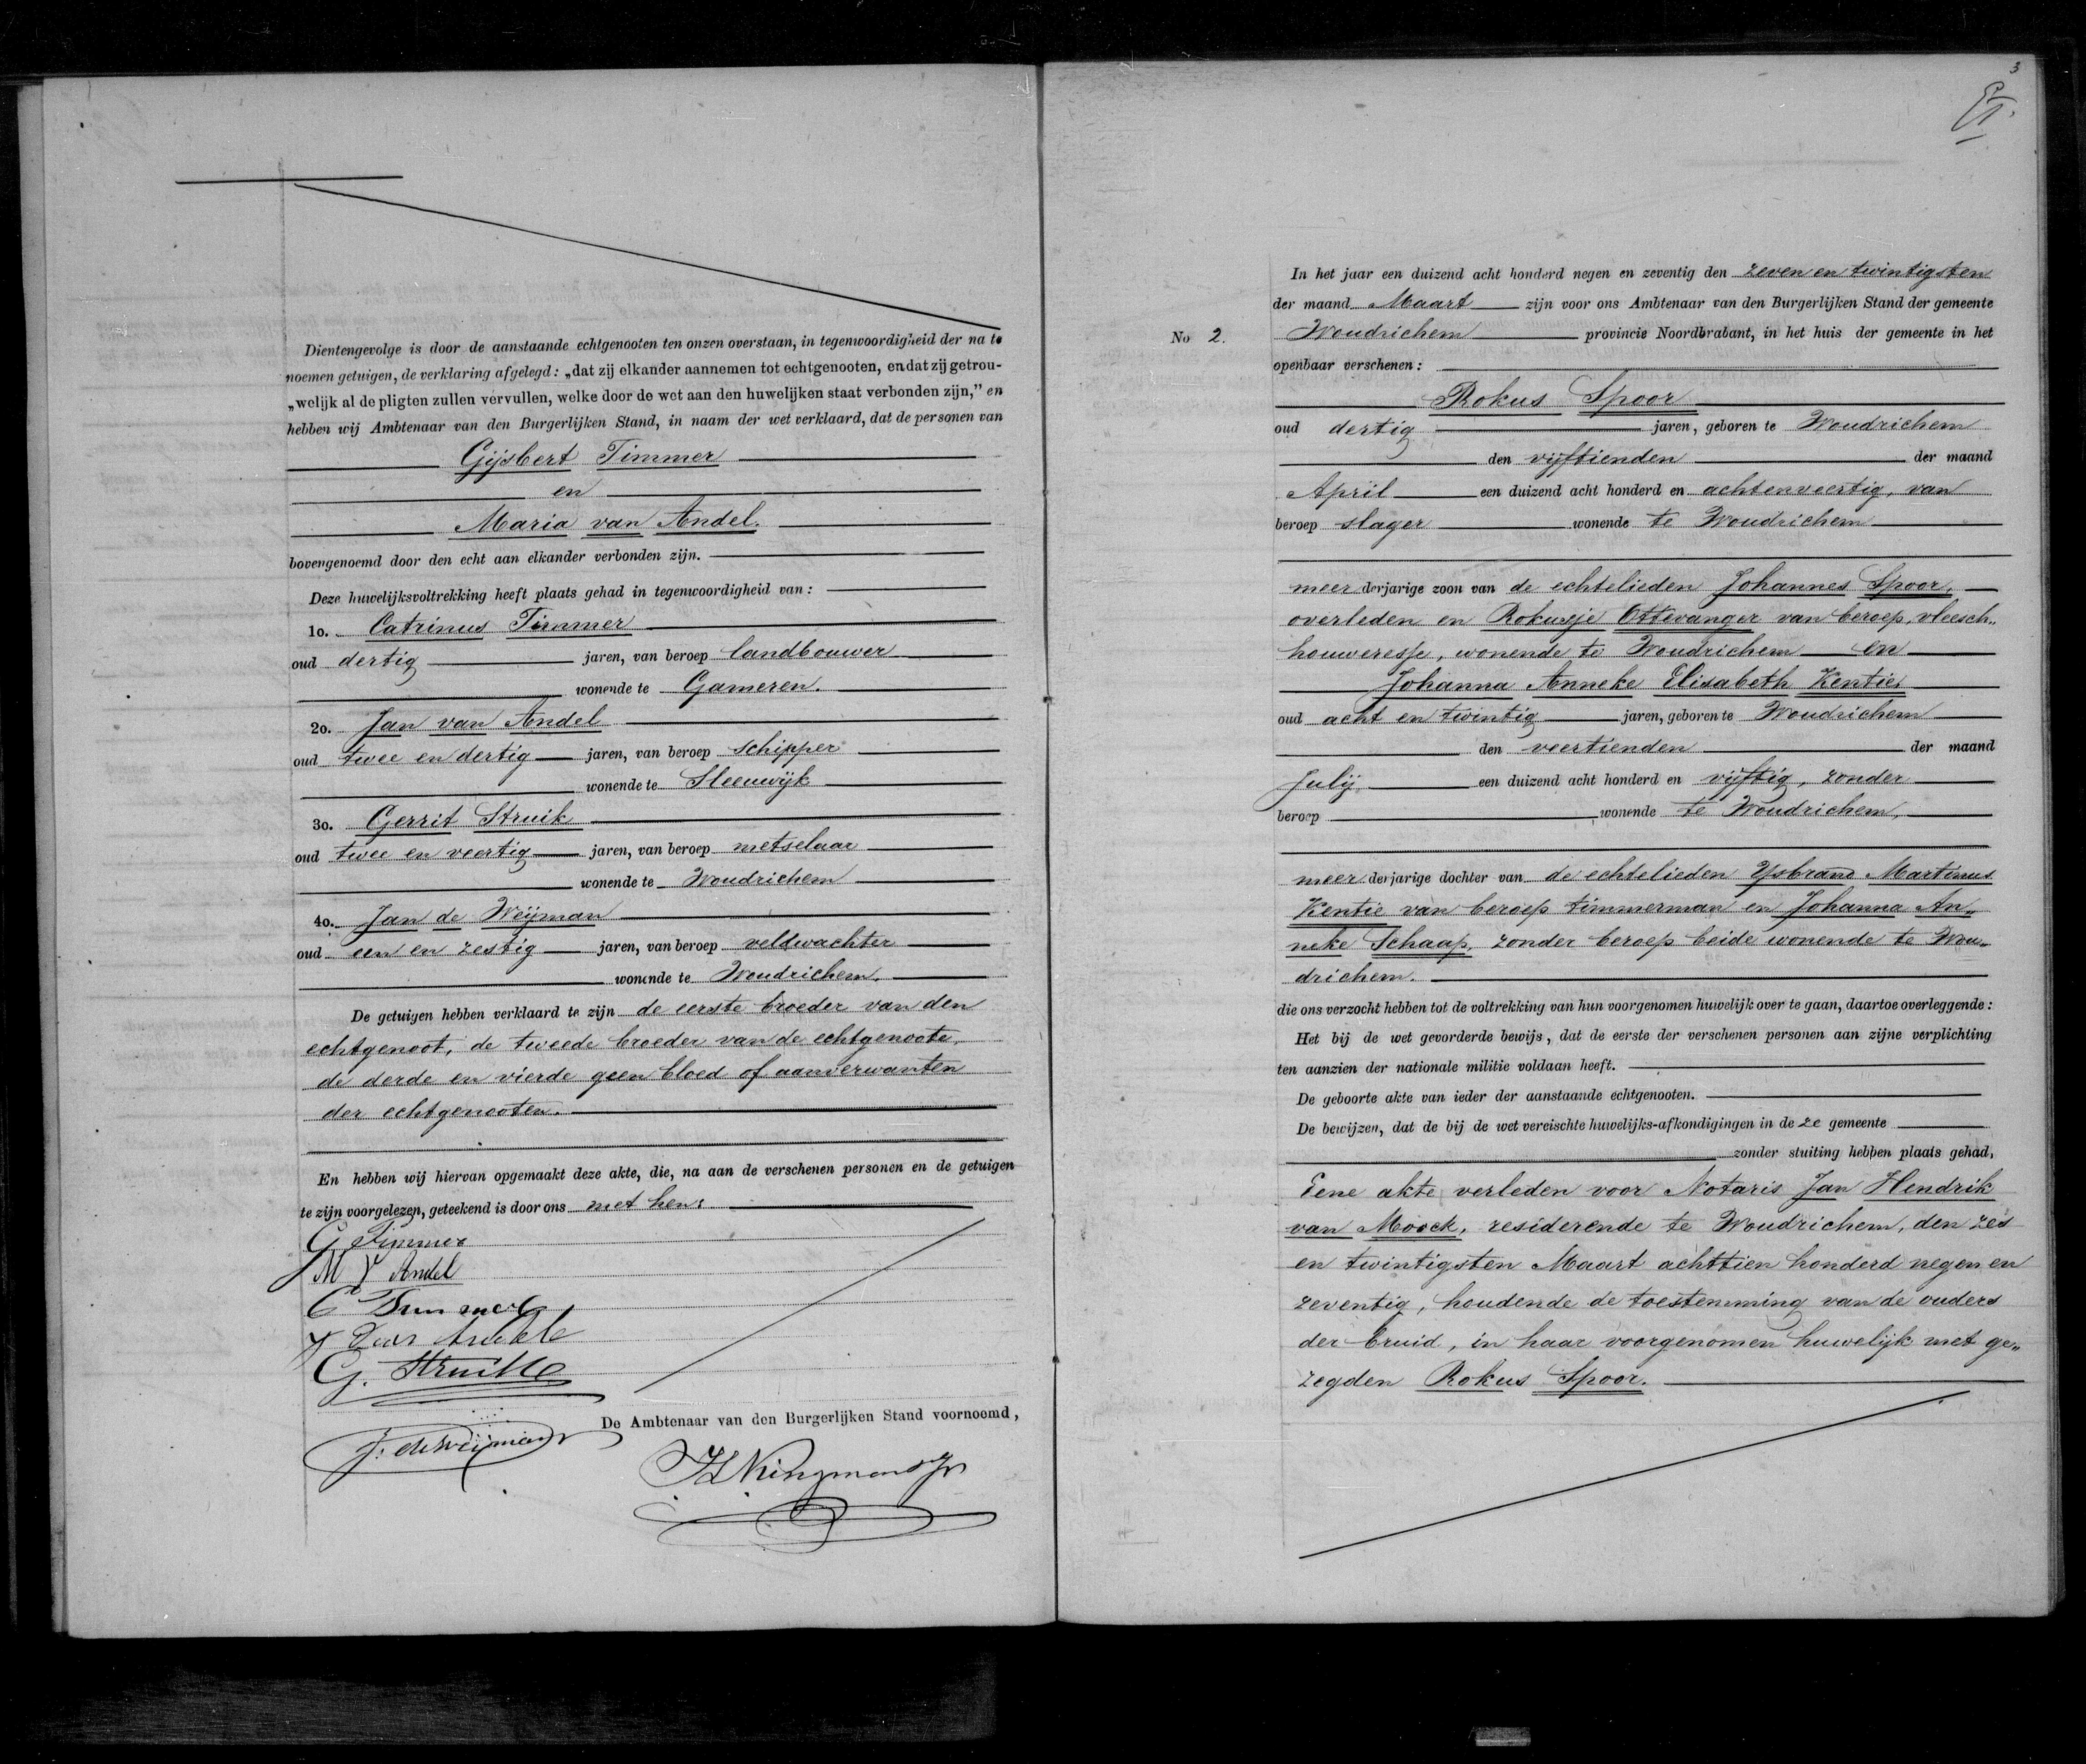 Dientengevolge is door de aanstaande echtgenooten ten onzen overstaan, in tegenwoordigheid der na te
noemen getuigen, de verklaring afgelegd: „dat zij elkander aannemen tot echtgenooten, en dat zij getrou-
„welijk al de pligten zullen vervullen, welke door de wet aan den huwelijken staat verbonden zijn,” en
hebben wij Ambtenaar van den Burgerlijken Stand, in naam der wet verklaard, dat de personen van
Gijsbert Timmer
en
Maria van Andel.
bovengenoemd door den echt aan elkander verbonden zijn.
Deze huwelijksvoltrekking heeft plaats gehad in tegenwoordigheid van:
1o. Catrinus Timmer
oud dertig jaren, van beroep landbouwer
wonende te Gameren.
2o. Jan van Andel
oud twee en dertig jaren, van beroep schipper
wonende te Sleeuwijk
3o. Gerrit Struik
oud twee en veertig jaren, van beroep metselaar
wonende te Woudrichem
4o. Jan de Weijman
oud een en zestig jaren, van beroep veldwachter
wonende te Woudrichem.
De getuigen hebben verklaard te zijn de eerste broeder van den
echtgenoot, de tweede broeder van de echtgenoote,
de derde en vierde geen bloed of aanverwanten
der echtgenooten.
En hebben wij hiervan opgemaakt deze akte, die, na aan de verschenen personen en de getuigen
te zijn voorgelezen, geteekend is door ons met hen:
G Timmer
M V Andel
C Timmer
J van Andel
G. Struik
De Ambtenaar van den Burgerlijken Stand voornoemd,
J. de Weijman
3
No 2.
In het jaar een duizend acht honderd negen en zeventig den zeven en twintigsten
der maand Maart zijn voor ons Ambtenaar van den Burgerlijken Stand der gemeente
Woudrichem provincie Noordbrabant, in het huis der gemeente in het
openbaar verschenen:
Rokus Spoor
oud dertig jaren, geboren te Woudrichem
den vijftienden der maand
April een duizend acht honderd en achtenveertig, van
beroep slager wonende te Woudrichem
meer derjarige zoon van de echtelieden Johannes Spoor,
overleden en Rokusje Ottevanger van beroep, vleesch„
houweresse, wonende te Woudrichem en
Johanna Anneke Elisabeth Kentie,
oud acht en twintig jaren, geboren te Woudrichem
den veertienden der maand
Julij een duizend acht honderd en vijftig, zonder
beroep wonende te Woudrichem,
meer derjarige dochter van de echtelieden Ysbrand Martinus
Kentie van beroep timmerman en Johanna An„
neke Schaap, zonder beroep beide wonende te Wou„
drichem.
die ons verzocht hebben tot de voltrekking van hun voorgenomen huwelijk over te gaan, daartoe overleggende:
Het bij de wet gevorderde bewijs, dat de eerste der verschenen personen aan zijne verplichting
ten aanzien der nationale militie voldaan heeft.
De geboorte akte van ieder der aanstaande echtgenooten.
De bewijzen, dat de bij de wet vereischte huwelijks-afkondigingen in de ze gemeente
zonder stuiting hebben plaats gehad,
Eene akte verleden voor Notaris Jan Hendrik
van Moock, residerende te Woudrichem, den zes
en twintigsten Maart achttien honderd negen en
zeventig, houdende de toestemming van de ouders
der bruid, in haar voorgenomen huwelijk met ge„
zegden Rokus Spoor.